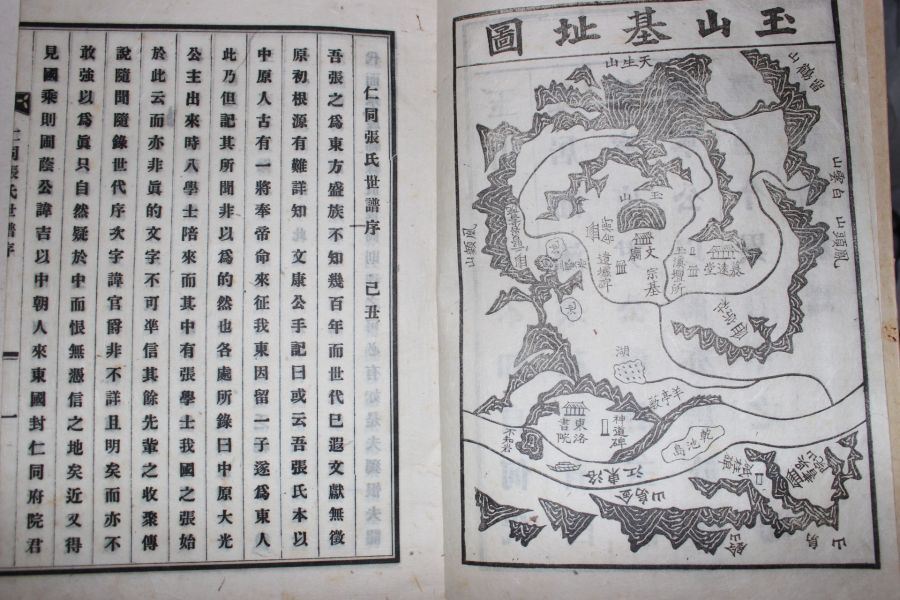 玉山基址圖
天生山
鳳頭山
白雲山
鳳頭山
玉山
文廟
宗基
遺墟碑
慕遠堂
玉溪壇所
湖
羊亭藪
東洛書院
神道碑
不知岩
乾池島
洛東江
金烏山
仁同張氏世譜序 己丑
吾張之爲東方盛族不知幾百年而世代已遐文獻無徵
原初根源有難詳知文康公手記曰或云吾張氏本以
中原人古有一將奉帝命來征我東因留二子遂爲東人
此乃但記其所聞非以爲的然也各處所錄曰中原大光
公主出來時八學士陪來而其中有張學士我國之張始
於此云而亦非眞的文字不可準信其餘先輩之收聚傳
說隨聞隨錄世代序次字諱官爵非不詳且明矣而亦不
敢強以爲眞只自然疑於中而恨無憑信之地矣近又得
見國乘則圖蔭公諱吉以中朝人來東國封仁同府院君
仁同張氏世譜序
一